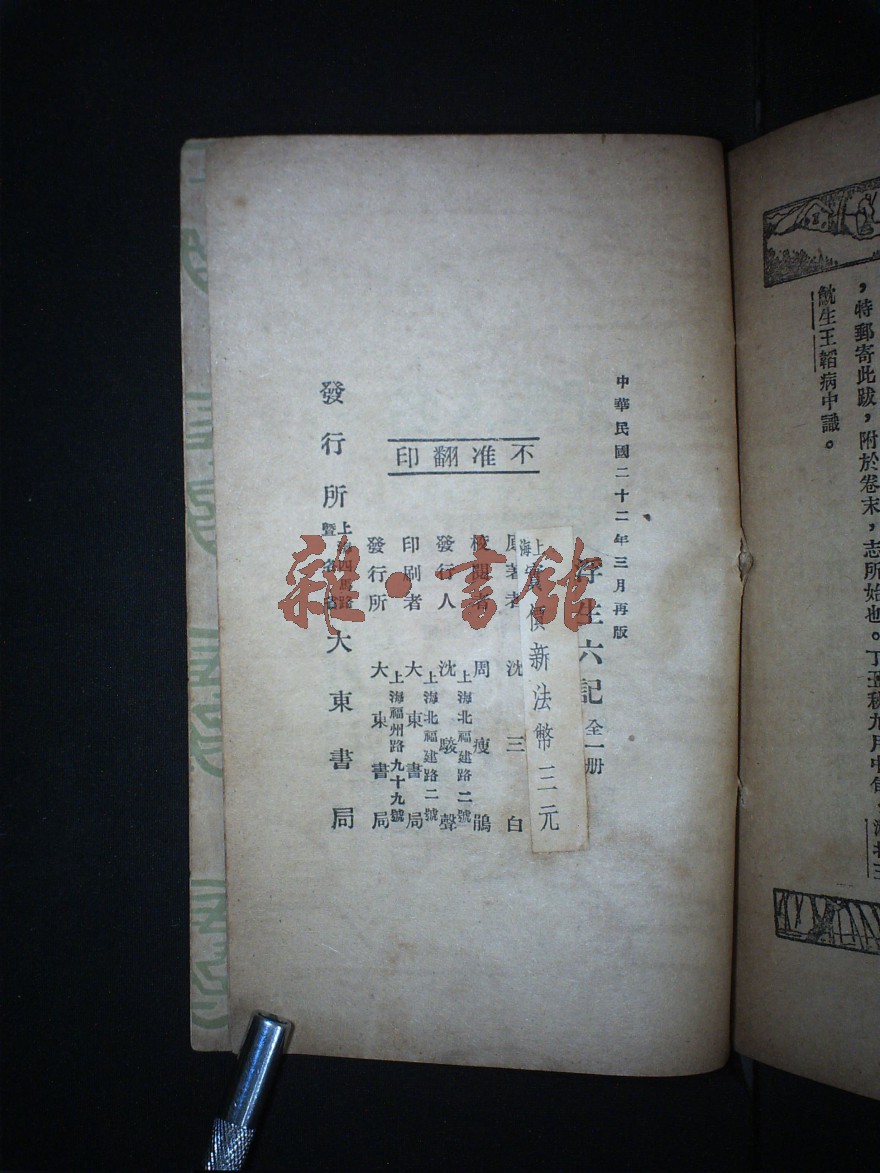 ，特郵寄此跋，附於卷末，志所始也。丁丑秋九月中旬，
鯫生王韜病中識。
中華民國二十二年三月再版
浮生六記 全一册
上海實價新法幣三元
不准翻印
原著者 沈三白
校閱者 周瘦鵑
上海北福建路二號
發行人 沈駿聲
上海北福建路二號
印刷者 大東書局
上海福州路九十九號
發行所 大東書局
發行所 上海四馬路暨各省 大東書局
雜·書館